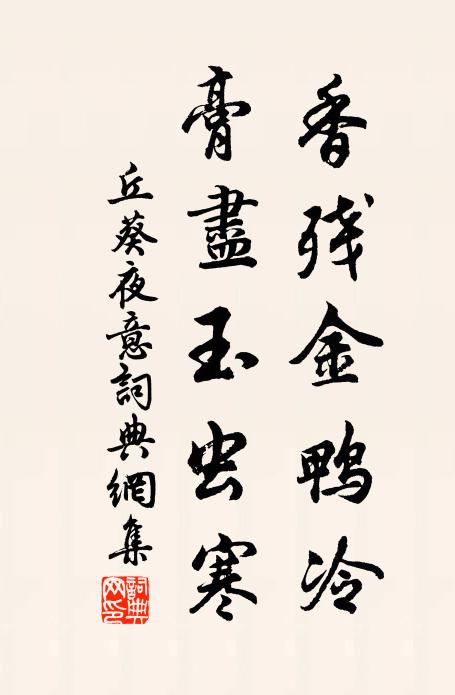 香残金鸭冷
膏盡玉虫寒
丘葵夜意詞典網集
詞典网印